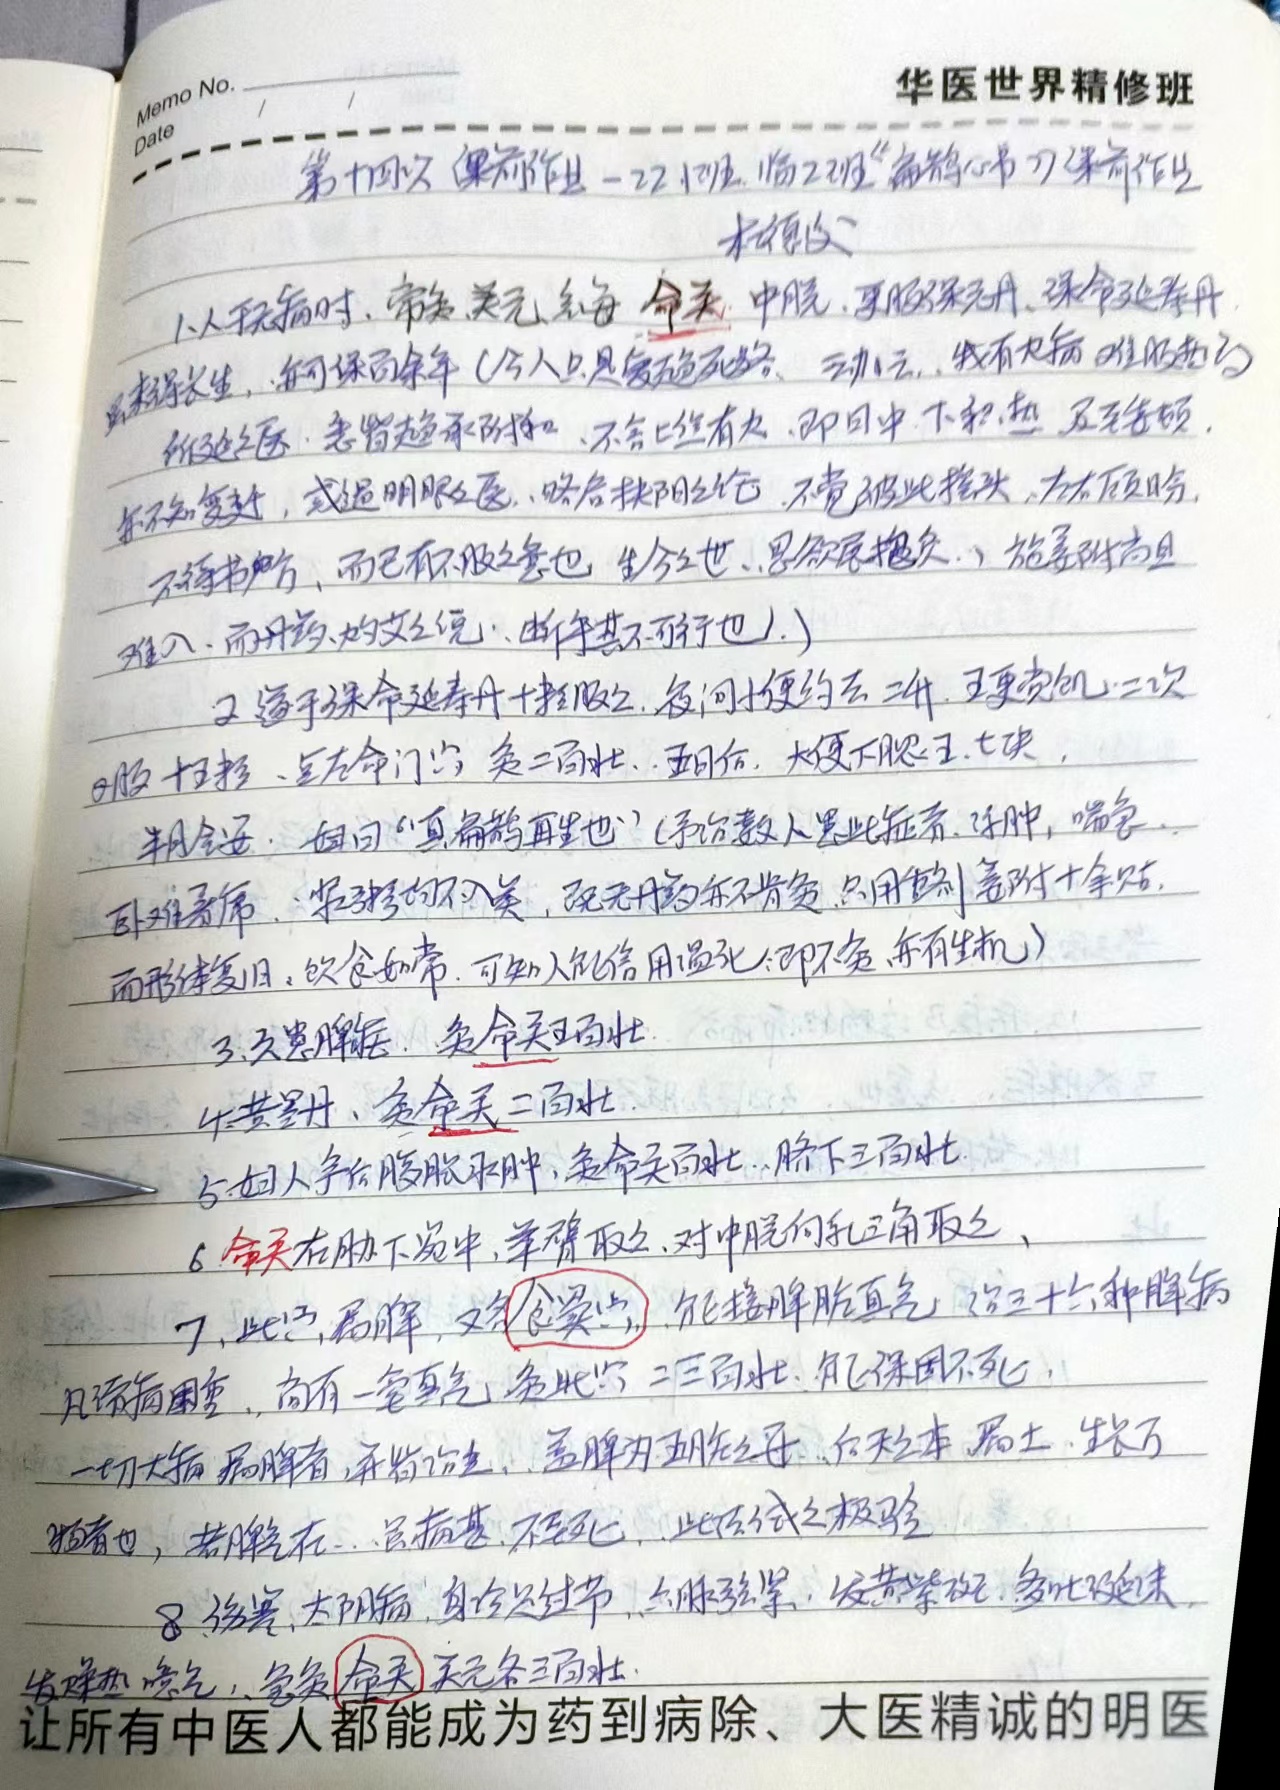 Memo No.
Date / /
华医世界精修班
第十四次 课前作业 一22小班 临22班《扁鹊心书》课前作业
1、人于无病时、常灸关元、气海 命关 中脘、更服保元丹、保命延寿丹
虽未得长生，亦可保百余年（今人只是爱趋死路、动云，我有火病难服热药
所延之医、悉皆趋承附和、不言上焦有火，即曰中、下积热 及至委顿，
亦不知变迁，或遇明眼之医，略启扶阳之论 不觉彼此摇头，左右顾盼，
不待书方，而已有不服之意也 生今之世，思欲展抱负，施姜附尚且
难入、而丹药、灼艾之说，断乎其不可行也）。）
2 遂于保命延寿丹十粒服之 夜间小便约去二升 五更觉饥 二次
服十五粒、点左命门穴 灸二百壮，五日后，大便下脓五、七块，
半月全安. 妇曰“真扁鹊再生也”（予治数人患此症者 浮肿，喘急
卧难着席，浆粥均不入矣，既无丹药亦不肯灸 只用重剂姜附十余贴，
而形体复旧，饮食如常. 可知人能信用温化，即不灸，亦有生机）
3、久患脾疟，灸命关五百壮.
4、黄疸、灸命关二百壮.
5、妇人产后腹胀水肿、灸命关百壮，脐下三百壮.
6 命关 在胁下宛中，举臂取之、对中脘向乳三角取之、
7、此穴属脾，又名食窦穴，能接脾脏真气，治三十六种脾病
凡诸病困重，尚有一毫真气，灸此穴 二三百壮、能保固不死，
一切大病属脾者，并皆治之，盖脾为五脏之母，后天之本 属土，生长万
物者也，若脾气在，虽病甚，不至死，此法试之极验
8 伤寒、太阴病，身冷足过节，六脉弦紧，发黄紫斑，多吐涎沫，
发燥热 噫气，急灸命关 关元各三百壮.
让所有中医人都能成为药到病除、大医精诚的明医